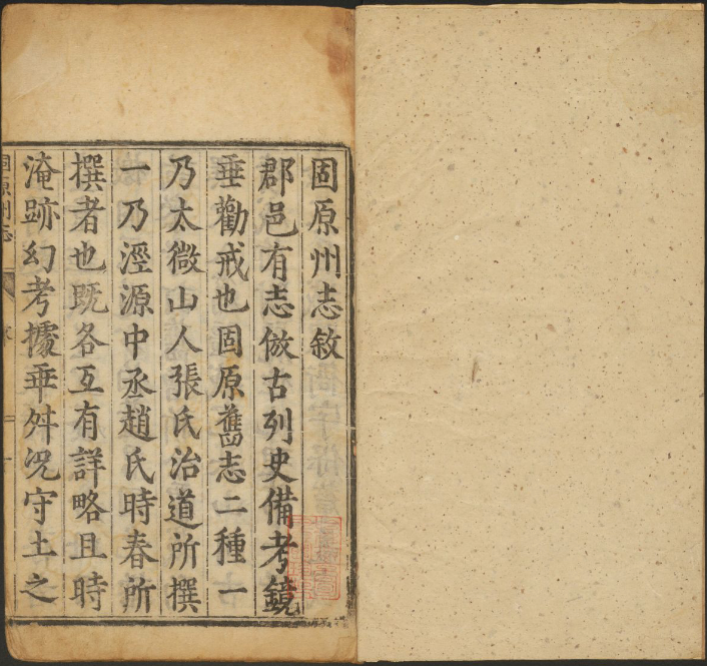 固原州志敘
郡邑有志倣古列史備考鏡
垂勸戒也固原舊志二種一
乃太微山人張氏治道所撰
一乃涇源中丞趙氏時春所
撰者也既各互有詳略且時
淹跡幻考據乖舛況守土之
固原州志